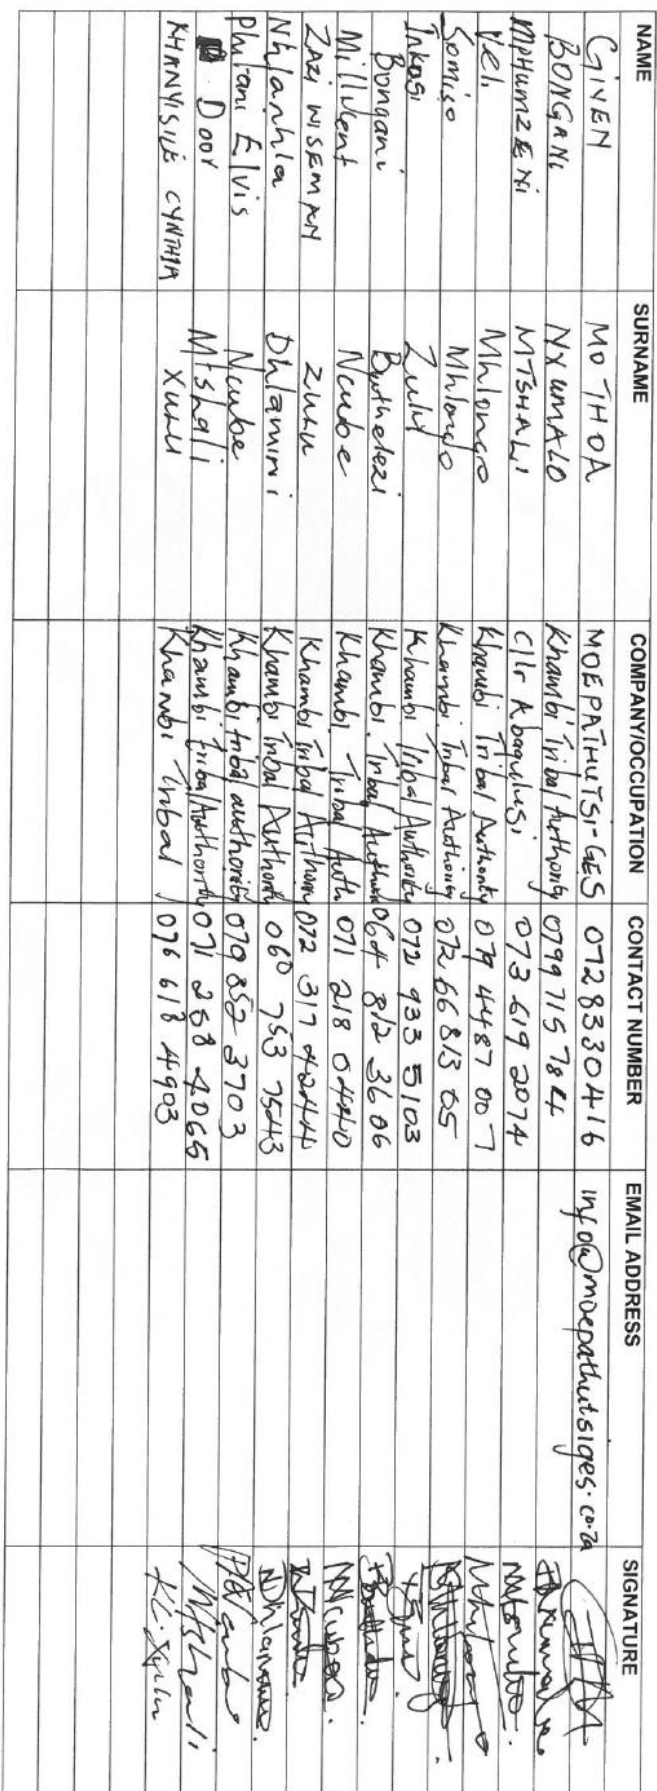 NAME SURNAME COMPANY/OCCUPATION CONTACT NUMBER EMAIL ADDRESS SIGNATURE
GIVEN MOTHOA MOEPATHUTSI-GES 0728330416 info@moepathutsiges.co.za
BONGANI NXUMALO Khambi Tribal Authority 0799715784
MPHUMZENI MTSHALI Cllr Abaqulusi 073 619 2074
Veli Mhlongo Khambi Tribal Authority 079 4487 007
Somiso Mhlongo Khambi Tribal Authority 072 66813 05
Inkosi Zulu Khambi Tribal Authority 072 933 5103
Bongani Buthelezi Khambi Tribal Authority 064 812 3606
Millicent Ncube Khambi Tribal Auth. 071 218 0440
ZAZI WISEMAN ZULU Khambi Tribal Authority 072 317 4244
Nhlanhla Dhlamini Khambi Tribal Authority 060 753 7543
Philani Elvis Ncube Khambi tribal authority 079 852 3703
Door Mtshali Khambi tribal Authority 071 258 4065
KHANYISILE CYNTHIA XULU Khambi Tribal 076 618 4903